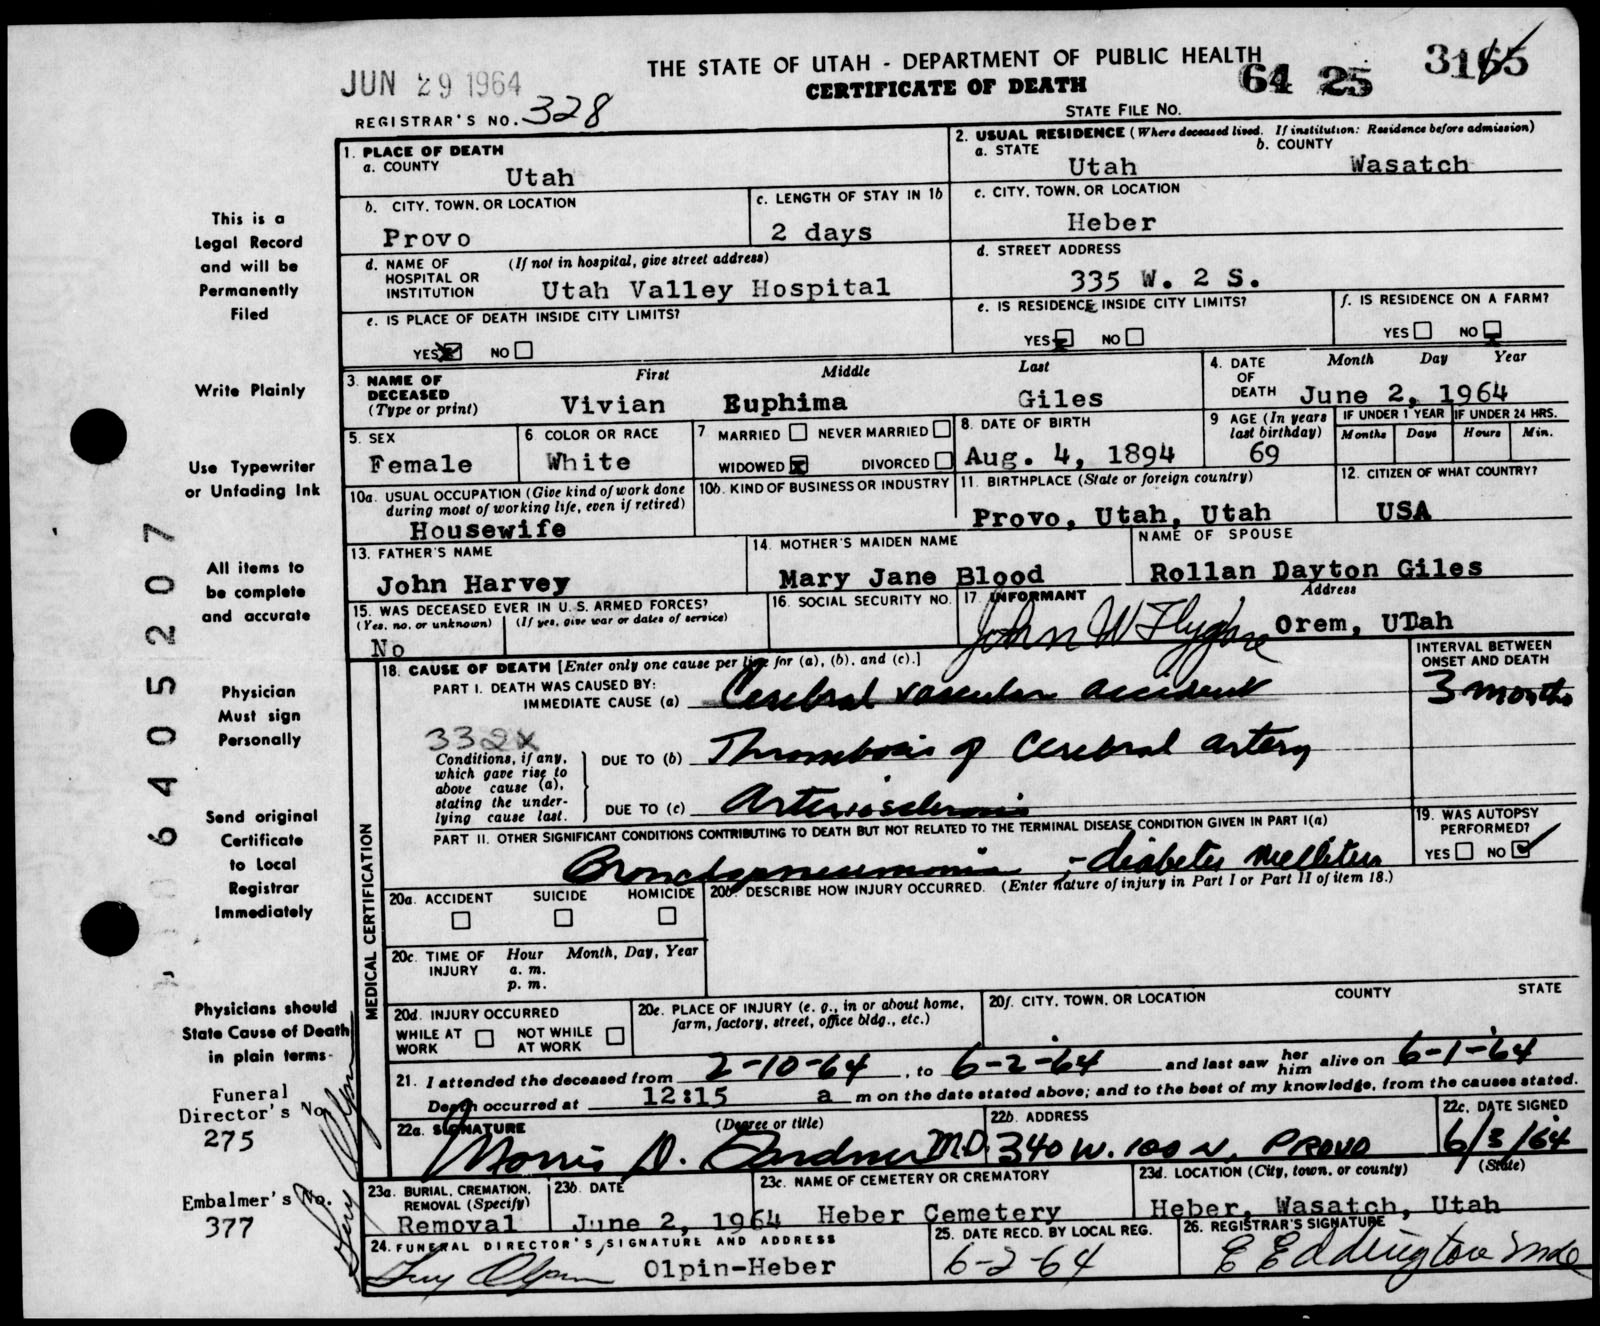 THE STATE OF UTAH - DEPARTMENT OF PUBLIC HEALTH
CERTIFICATE OF DEATH
JUN 29 1964
64 25
STATE FILE NO.
REGISTRAR'S NO. 328
1. PLACE OF DEATH
a. COUNTY
Utah
2. USUAL RESIDENCE (Where deceased lived. If institution: Residence before admission)
a. STATE
Utah
b. COUNTY
Wasatch
b. CITY, TOWN, OR LOCATION
Provo
c. LENGTH OF STAY IN 1b
2 days
c. CITY, TOWN, OR LOCATION
Heber
d. NAME OF HOSPITAL OR INSTITUTION
(If not in hospital, give street address)
Utah Valley Hospital
d. STREET ADDRESS
335 W. 2 S.
e. IS PLACE OF DEATH INSIDE CITY LIMITS?
YES NO
e. IS RESIDENCE INSIDE CITY LIMITS?
YES NO
f. IS RESIDENCE ON A FARM?
YES NO
3. NAME OF DECEASED
(Type or print)
First Middle Last
Vivian Euphima Giles
4. DATE OF DEATH
Month Day Year
June 2, 1964
5. SEX
Female
6. COLOR OR RACE
White
7 MARRIED NEVER MARRIED
WIDOWED DIVORCED
8. DATE OF BIRTH
Aug. 4, 1894
9 AGE (In years last birthday)
69
IF UNDER 1 YEAR
Months Days
IF UNDER 24 HRS.
Hours Min.
10a. USUAL OCCUPATION (Give kind of work done during most of working life, even if retired)
Housewife
10b. KIND OF BUSINESS OR INDUSTRY
11. BIRTHPLACE (State or foreign country)
Provo, Utah, Utah
12. CITIZEN OF WHAT COUNTRY?
USA
13. FATHER'S NAME
John Harvey
14. MOTHER'S MAIDEN NAME
Mary Jane Blood
NAME OF SPOUSE
Rollan Dayton Giles
15. WAS DECEASED EVER IN U. S. ARMED FORCES?
(Yes, no, or unknown) (If yes, give war or dates of service)
No
16. SOCIAL SECURITY NO.
17. INFORMANT
John W
Address
Orem, UTah
18. CAUSE OF DEATH [Enter only one cause per line for (a), (b), and (c).]
INTERVAL BETWEEN ONSET AND DEATH
PART I. DEATH WAS CAUSED BY:
IMMEDIATE CAUSE (a) Cerebral vascular accident
3 months
332x
Conditions, if any,
which gave rise to
above cause (a),
stating the under-
lying cause last.
DUE TO (b) Thrombosis of Cerebral artery
DUE TO (c) Arteriosclerosis
PART II. OTHER SIGNIFICANT CONDITIONS CONTRIBUTING TO DEATH BUT NOT RELATED TO THE TERMINAL DISEASE CONDITION GIVEN IN PART I(a)
Bronchopneumonia ; - diabetes mellitus
19. WAS AUTOPSY PERFORMED?
YES NO
20a. ACCIDENT SUICIDE HOMICIDE
20b. DESCRIBE HOW INJURY OCCURRED. (Enter nature of injury in Part I or Part II of item 18.)
20c. TIME OF INJURY
Hour Month, Day, Year
a. m.
p. m.
20d. INJURY OCCURRED
WHILE AT WORK NOT WHILE AT WORK
20e. PLACE OF INJURY (e. g., in or about home, farm, factory, street, office bldg., etc.)
20f. CITY, TOWN, OR LOCATION COUNTY STATE
21. I attended the deceased from 2-10-64, to 6-2-64 and last saw her him alive on 6-1-64
Death occurred at 12:15 a m on the date stated above; and to the best of my knowledge, from the causes stated.
22a. SIGNATURE (Degree or title)
Morris D. Gardner M.D.
22b. ADDRESS
340 W. 100 N. PROVO
22c. DATE SIGNED
6/3/64
23a. BURIAL, CREMATION, REMOVAL (Specify)
Removal
23b. DATE
June 2, 1964
23c. NAME OF CEMETERY OR CREMATORY
Heber Cemetery
23d. LOCATION (City, town, or county) (State)
Heber, Wasatch, Utah
24. FUNERAL DIRECTOR'S SIGNATURE AND ADDRESS
Olpin-Heber
25. DATE RECD. BY LOCAL REG.
6-2-64
26. REGISTRAR'S SIGNATURE
E E Addington
MEDICAL CERTIFICATION
This is a
Legal Record
and will be
Permanently
Filed
Write Plainly
Use Typewriter
or Unfading Ink
All items to
be complete
and accurate
Physician
Must sign
Personally
Send original
Certificate
to Local
Registrar
Immediately
Physicians should
State Cause of Death
in plain terms-
Funeral
Director's No.
275
Embalmer's No.
377
64 05207